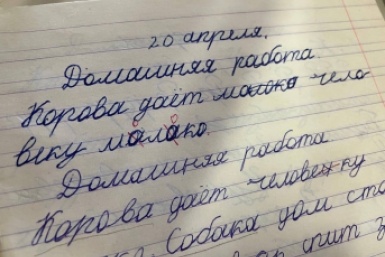 20 апреля.
Домашняя работа.
Корова даёт чело
веку малако.
Домашняя работа
Корова даёт человеку
Собака дом
спит